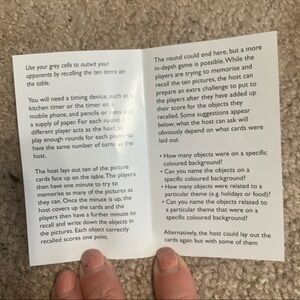 Use your grey cells to outwit your
opponents by recalling the ten items on
the table.
You will need a timing device, such as a
kitchen timer or the timer on a
mobile phone, and pencils or pens and
a supply of paper. For each round, a
different player acts as the host, so
play enough rounds for each player to
have the same number of turns as the
host.
The host lays out ten of the picture
cards face up on the table. The players
then have one minute to try to
memorise as many of the pictures as
they can. Once the minute is up, the
host covers up the cards and the
players then have a further minute to
recall and write down the objects in
the pictures. Each object correctly
recalled scores one point.
The round could end here, but a more
in-depth game is possible. While the
players are trying to memorise and
recall the ten pictures, the host can
prepare an extra challenge to put to
the players after they have added up
their score for the objects they
recalled. Some suggestions appear
below; what the host can ask will
obviously depend on what cards were
laid out.
• How many objects were on a specific
coloured background?
• Can you name the objects on a
specific coloured background?
• How many objects were related to a
particular theme (e.g. holidays or food)?
• Can you name the objects related to
a particular theme that were on a
specific coloured background?
Alternatively, the host could lay out the
cards again but with some of them